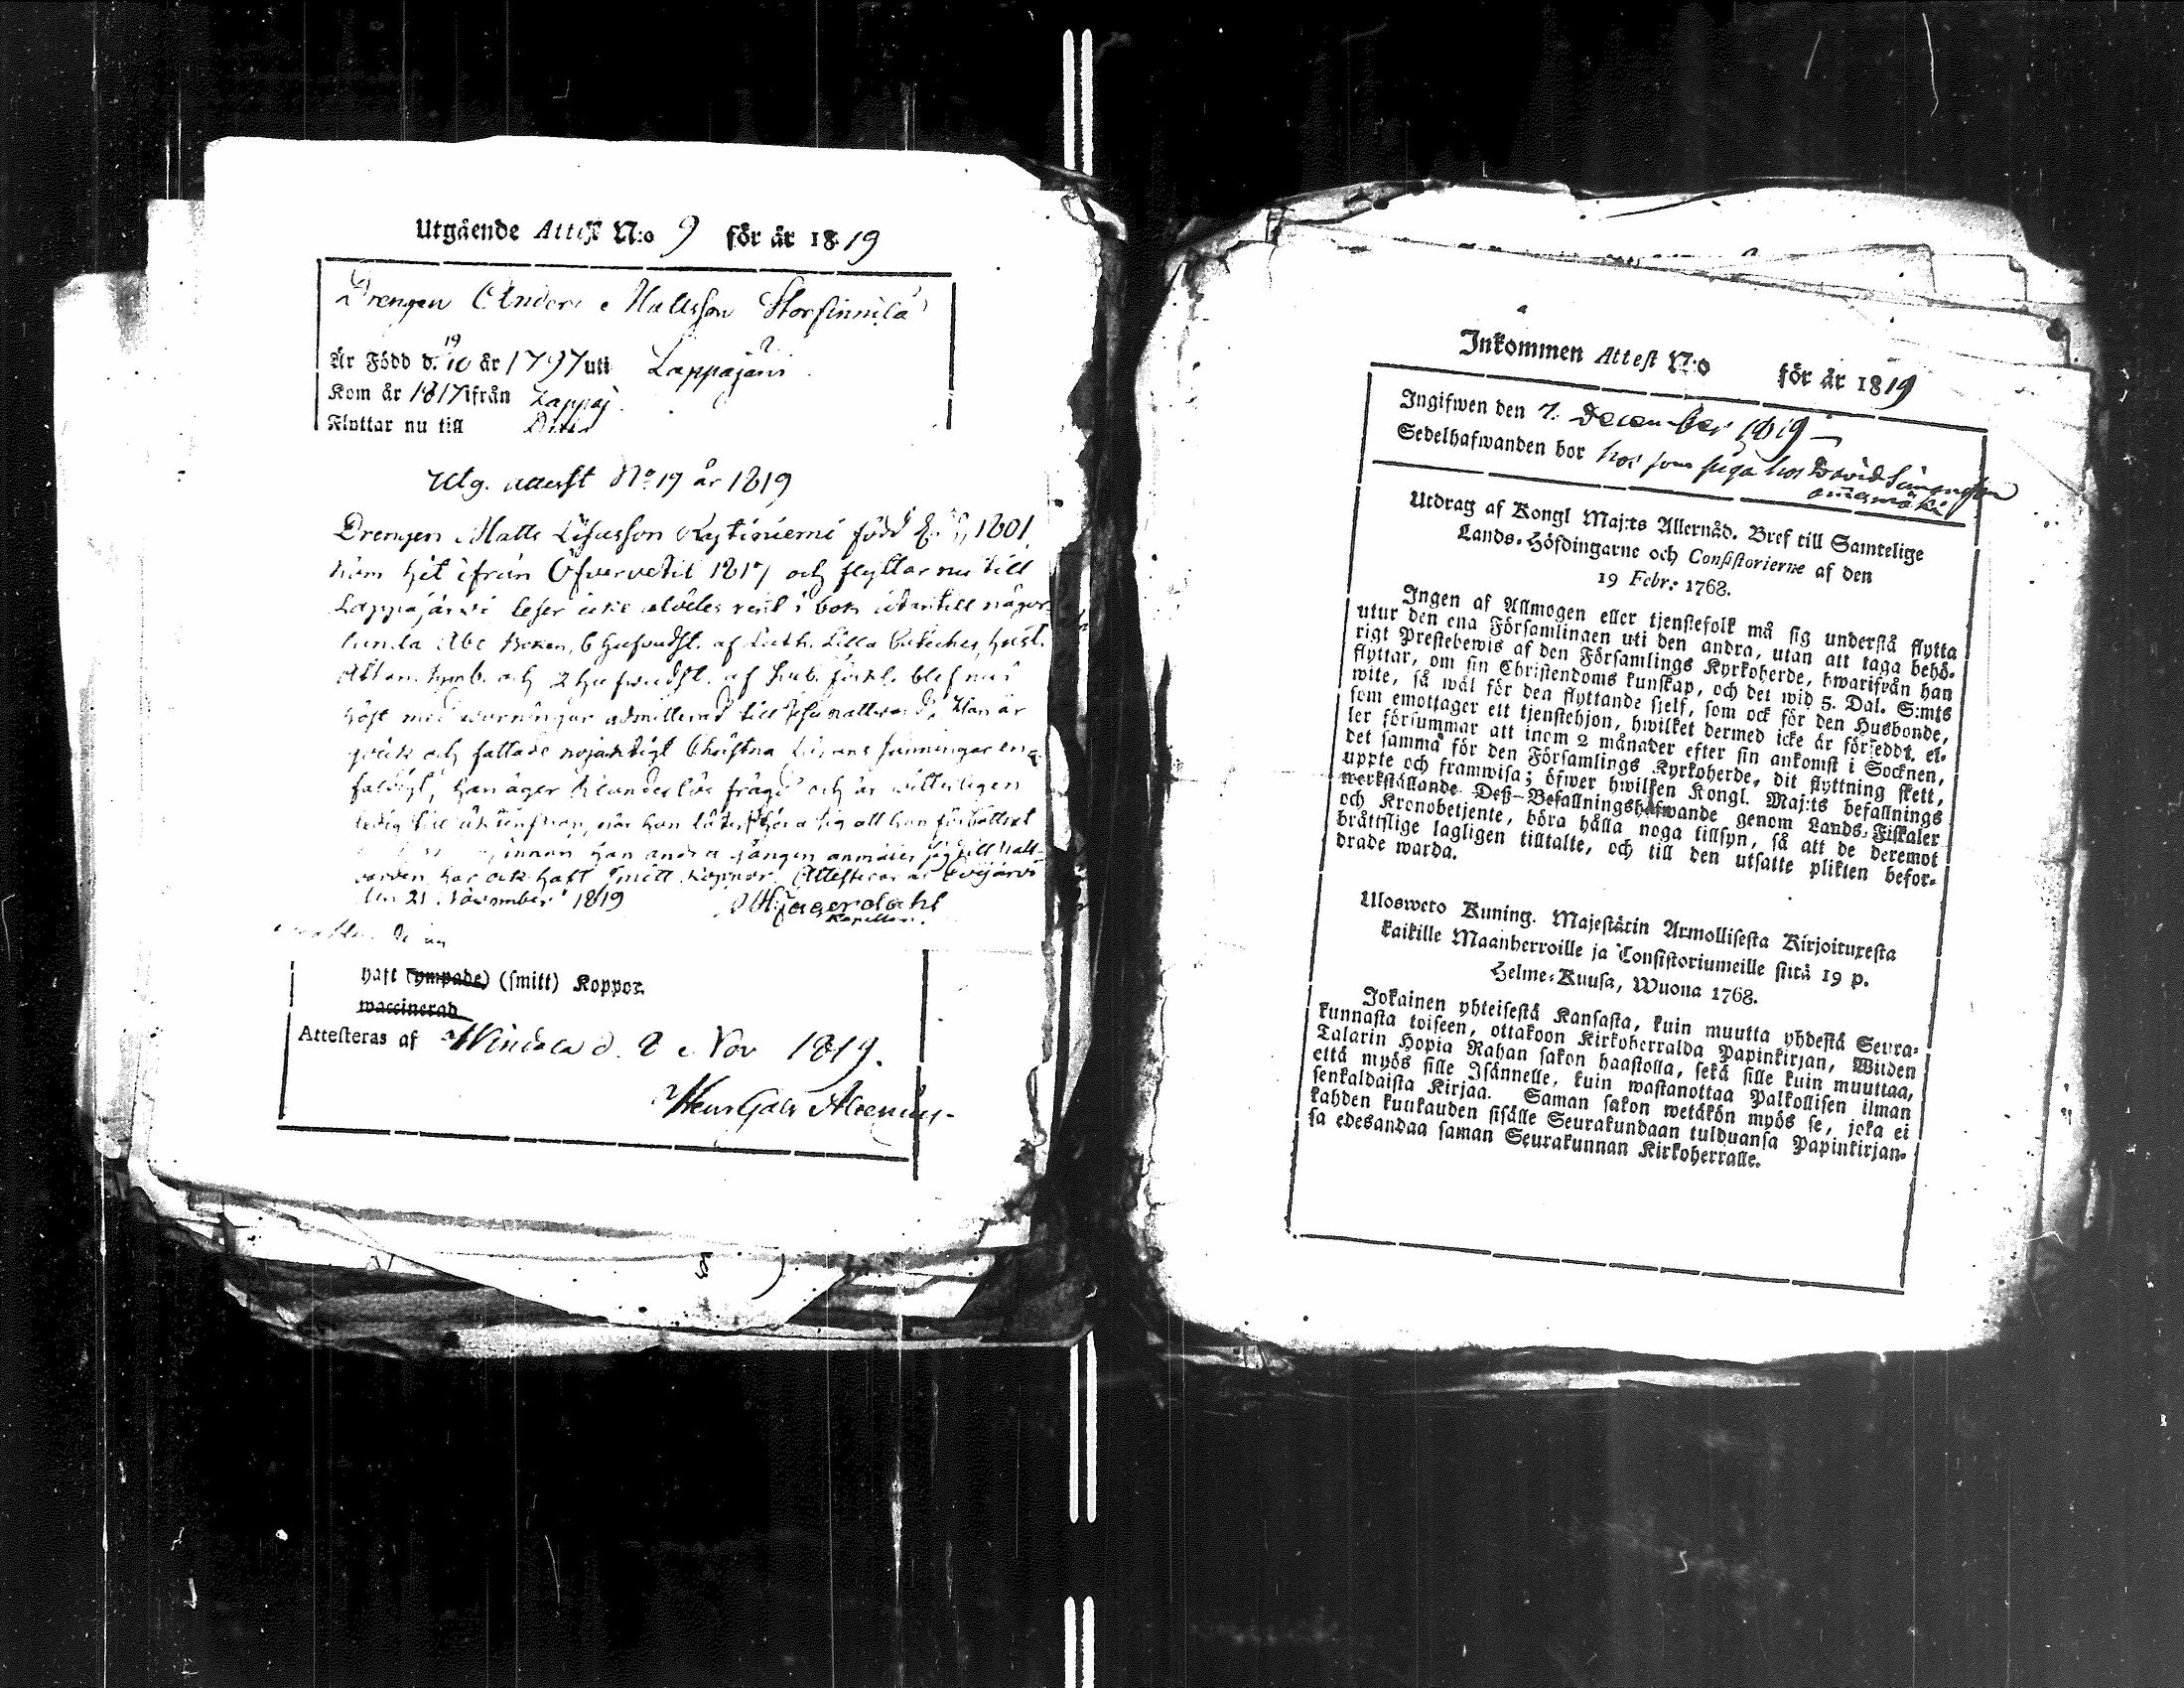 Utgående Attest N:o 9 för år 1819
Drengen Anders Mattsson Storfinnilä
Är Född d. 19/10 år 1797 uti Lappajärvi
Kom år 1817 ifrån Lappaj.
Flyttar nu till Dito
Utg. attest No 19 år 1819
Drengen Matts Kytiniemi född 1801
kom hit ifrån Öfvervetil 1817 och flyttar nu till
Lappajärvi leser icke rent i bok utantill någor-
lunda Abc Boken, 6 hufvudst. af Luth. Lilla Cateches, hust.
Athan. Symb. och 2 hufvudst. af förkl. blef nu i
höst med varningar admitterad till Han är
och fattade Christna
faldigt, han äger klanderlös frägd och är vitterligen
ledig till när han låter höra sig att han förbättrat
innan han andra gången anmäler sig till natt-
varden har ock haft smitt koppor. Attesterar af Evijärvi
den 21 November 1819
Kapellan.
haft (ympade) (smitt) Koppor
waccinerad
Attesteras af Windala d. 8 Nov 1819.
Inkommen Attest N:o för år 1819
Ingifwen den 7. December 1819
Sedelhafwanden bor hos som piga hos David Simonsson
Utdrag af Kongl Maj:ts Allernåd. Bref till Samtelige
Lands-Höfdingarne och Consistorierne af den
19 Febr: 1768.
Ingen af Allmogen eller tjenstefolk må sig understå flytta
utur den ena Församlingen uti den andra, utan att taga behö-
rigt Prestebewis af den Församlings Kyrkoherde, hwarifrån han
flyttar, om sin Christendoms kunskap, och det wid 5. Dal. S:mts
wite, så wäl för den flyttande sjelf, som ock för den Husbonde,
som emottager ett tjenstehjon, hwilket dermed icke är försedt. el-
ler försummar att inom 2 månader efter sin ankomst i Socknen,
det samma för den Församlings Kyrkoherde, dit flyttning skett,
uppte och framwisa; öfwer hwilken Kongl. Maj:ts befallnings
werkställande Deß Befallningshafwande genom Lands-Fiskaler
och Kronobetjente, böra hålla noga tillsyn, så att de deremot
bråttslige lagligen tilltalte, och till den utsatte plikten befor-
drade warda.
Ulosweto Kuning. Majestätin Armollisesta Kirjoituxesta
kaikille Maanherroille ja Consistoriumeille siitä 19 p.
Helme-Kuusa, Wuona 1768.
Jokainen yhteisestä Kansasta, kuin muutta yhdestä Seura-
kunnasta toiseen, ottakoon Kirkoherralda Papinkirjan, Wiiden
Talarin Hopia Rahan sakon haastolla, sekä sille kuin muuttaa,
että myös sille Isännelle, kuin wastanottaa Palkollisen ilman
senkaldaista Kirjaa. Saman sakon wetäkön myös se, joka ei
kahden kuukauden sisälle Seurakundaan tulduansa Papinkirjan-
sa edesandaa saman Seurakunnan Kirkoherralle.